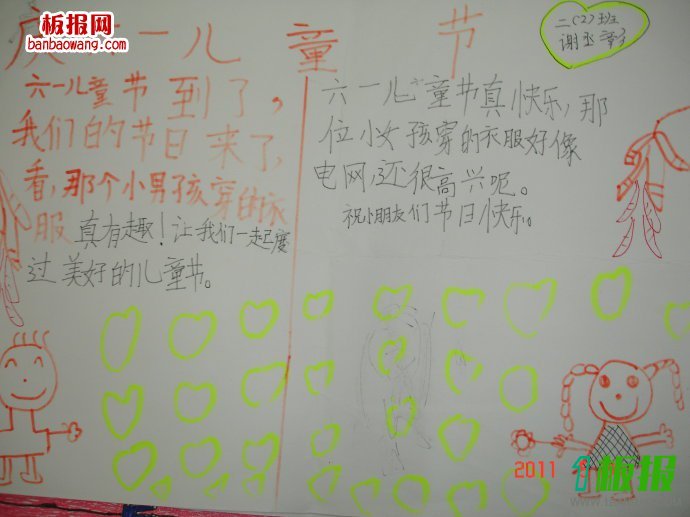 板报网
banbaowang.com
庆六一儿童节
二(2)班
六一儿童节到了,
我们的节日来了,
看,那个小男孩穿的衣
服真有趣!让我们一起度
过美好的儿童节。
六一儿童节真快乐,那
位小女孩穿的衣服好像
电网,还很高兴呢。
祝小朋友们节日快乐。
2011
板报